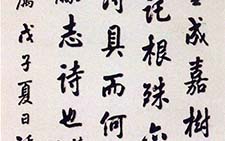 成嘉樹
託根殊
具而何
志詩也
戊子夏日